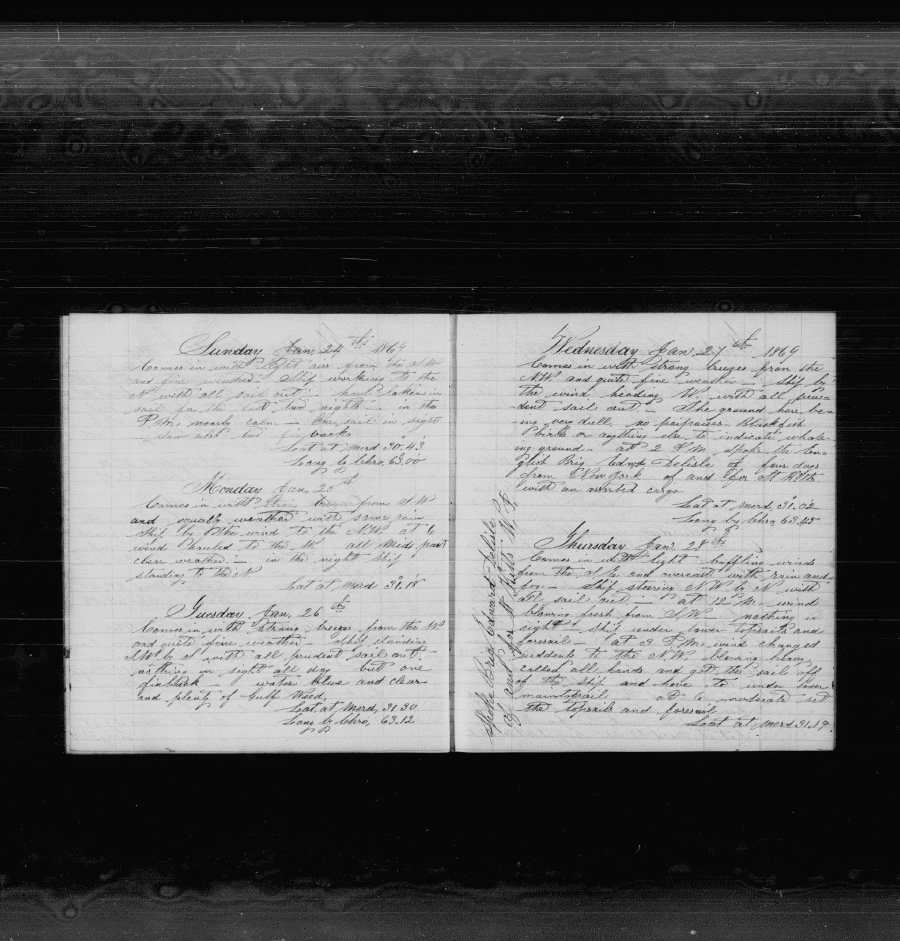 Sunday Jan, 24th 1869
Comes in with light airs from the N W
and fine weather. Ship working to the
N with all sail out – have taken in
sail for the last two nights – in the
P.M. nearly calm – One sail in sight
Saw
Lat at Merd 30.43
Long by Chro, 63.00
Monday Jan, 25th
Comes in with strong from S W
and squally weather with some rain
Ship by the wind to the N.W. at 6
wind hauled to the W. all
clear weather. – in the night Ship
standing to the N
Lat at Merd 31.18
Tuesday Jan, 26th
Comes in with strong breezes from the W
and quite fine weather Ship standing
S W by S with all prudent sail out –
nothing in sight all day but one
finback – water blue and clear
and plenty of Gulf Weed,
Lat at Merd, 31.30
Long by Chro, 63.12
Wednesday Jan. 27th 1869
Comes in with strong breezes from the
N.W. and quite fine weather – Ship by
the wind heading W. with all pru-
dent sail out. – The ground here be-
ing very dull, no porpoises Blackfish
birds or anything else to indicate whale-
ing ground – at 2 P.M. spoke the En-
glish Brig Edwd Delisle of four days
from New York of and for St Kitts
with an assorted cargo
Lat at Merd, 31.02
Long by Chro 63.43
Thursday Jan. 28th
Comes in with light baffling winds
from the and overcast with rain and
fog – Ship steering N W by N with
all sail out. – at 12 M. wind
blowing fresh from S.W. – nothing in
sight – ship under lower topsails and
foresail – at 3 P.M. wind changed
suddenly to the N.W. blowing heavy
called all hands and got the sail off
of the ship and hove to under lower
maintopsail. at 6 moderate set
the topsails and foresail
Laat at Merd 31.19
Spoke brig Edward Delisle
of and for St Kitts W. I.